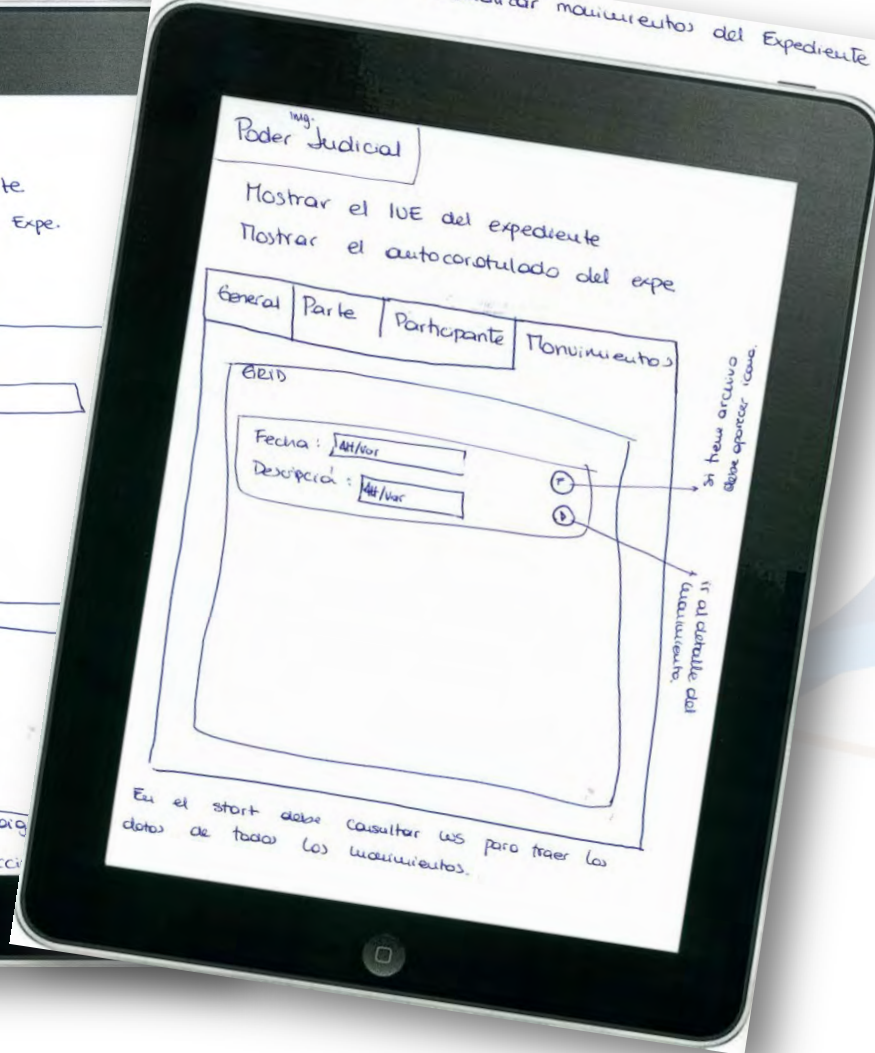 movimientos del Expediente
te.
Expe.
Img.
Poder Judicial
Mostrar el IUE del expediente
Mostrar el autocorotulado del expe
General Parte Participante Monvimientos
GRID
Fecha : Att/Var
Descripció : Att/Var
si tiene archivo
debe aparecer icono.
ir al detalle del
movimiento.
En el start debe consultar WS para traer los
datos de todos los movimientos.